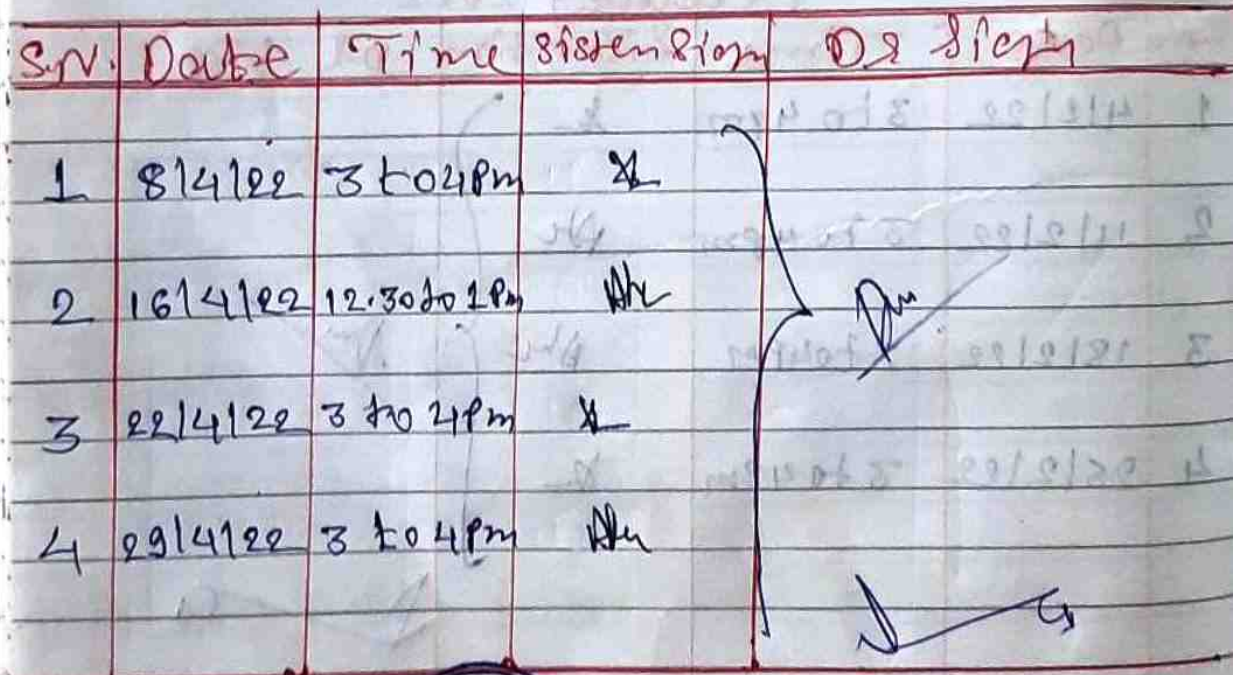 S.N. Date Time Sister Sign Dr Sign
1 8/4/22 3 to 4 Pm
2 16/4/22 12.30 to 1 Pm
3 22/4/22 3 to 4 Pm
4 29/4/22 3 to 4 Pm